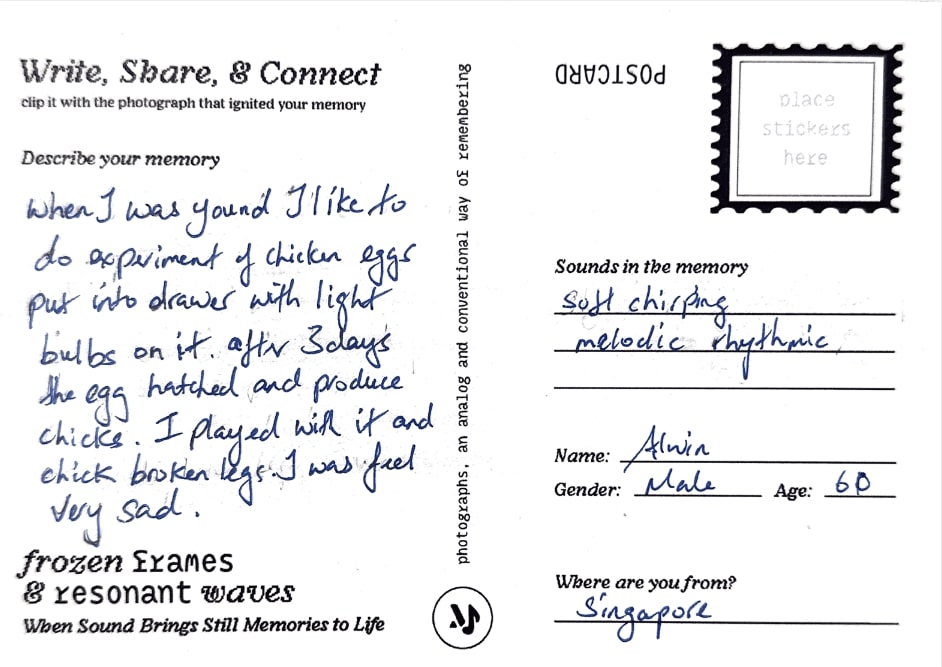 Write, Share, & Connect
clip it with the photograph that ignited your memory
Describe your memory
when I was yound I like to
do experiment of chicken eggs
put into drawer with light
bulbs on it. after 3 days
the egg hatched and produce
chicks. I played with it and
chick broken legs. I was feel
very sad.
frozen frames
& resonant waves
When Sound Brings Still Memories to Life
photographs, an analog and conventional way of remembering
POSTCARD
place
stickers
here
Sounds in the memory
soft chirping
melodic rhythmic
Name: Alwin
Gender: Male Age: 60
Where are you from?
Singapore